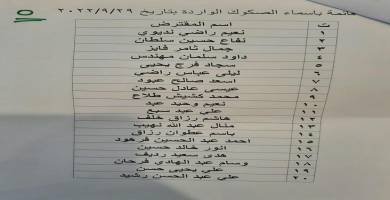 قائمة باسماء الصكوك الواردة بتاريخ ٢٠٢٢/٩/٢٩
ت اسم المقترض
١ نعيم راضي نديوي
٢ نفاع حسين سلطان
٣ جمال ثامر فايز
٤ داود سلمان مهندس
٥ سجاد فرج يحيى
٦ ليلى عباس راضي
٧ اسعد صالح عبود
٨ عيسى عادل حسين
٩ محمد كشيش طلاح
١٠ نعيم وحيد عبد
١١ علي عبد سبع
١٢ هاشم رزاق خلف
١٣ منال عبد الله نهيب
١٤ باسم عطوان رزاق
١٥ احمد عبد الحسين فرهود
١٦ انور خالد حسين
١٧ هدى سعيد رديف
١٨ وسام عبد الهادي فرحان
١٩ علي يحيى حسن
٢٠ علي عبد الحسن رشيد